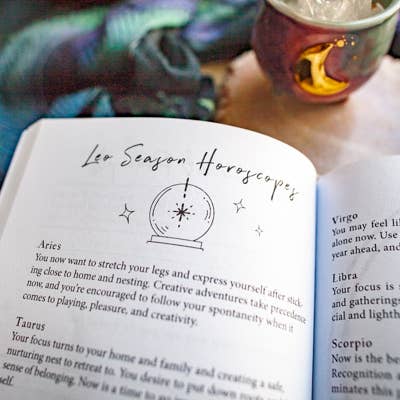 Leo Season Horoscopes
Aries
You now want to stretch your legs and express yourself after stick-
ing close to home and nesting. Creative adventures take precedence
now, and you're encouraged to follow your spontaneity when it
comes to playing, pleasure, and creativity.
Taurus
Your focus turns to your home and family and creating a safe,
nurturing nest to retreat to. You desire to put down roots and
sense of belonging. Now is a time to
self.
Virgo
You may feel li
alone now. Use
year ahead, and
Libra
Your focus is
and gatherings
cial and lighth
Scorpio
Now is the be
Recognition a
minates this p